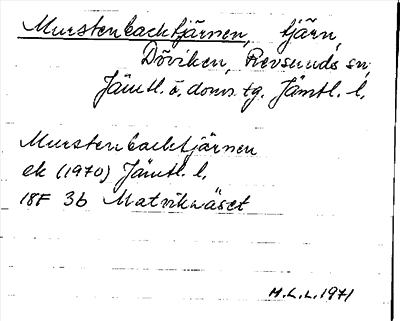 Murstenbacktjärnen, tjärn,
Döviken, Revsunds sn,
Jämtl. ö. doms. tg. Jämtl. l.
Murstenbacktjärnen
ek (1970) Jämtl. l.
18F 3b Matviknäset
H.L.L. 1971